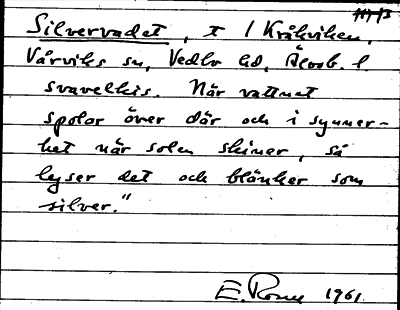 Silvervadet, t. / Kråkviken,
Vårviks sn, Vedbo hd, Älvsb. l.
svavelkis. När vattnet
spolar över där och i synner-
het när solen skiner, så
lyser det och blänker som
silver."
E. 1961